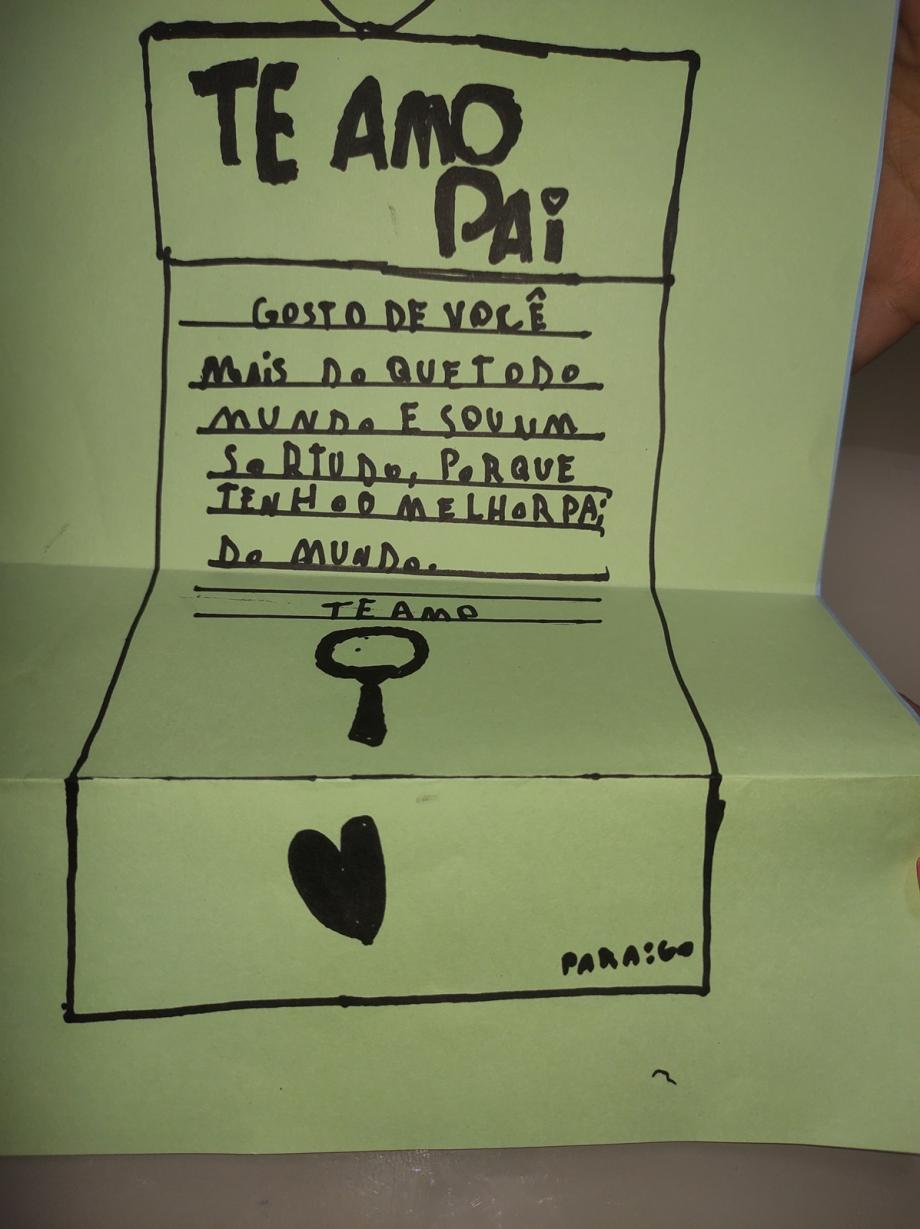 TE AMO
PAi
GOSTO DE VOCÊ
MAiS DO QUE TODO
MUNDO E SOU UM
SORTUDO, PORQUE
TENHO O MELHOR PAi
DO MUNDO.
TE AMO
PARA:GO